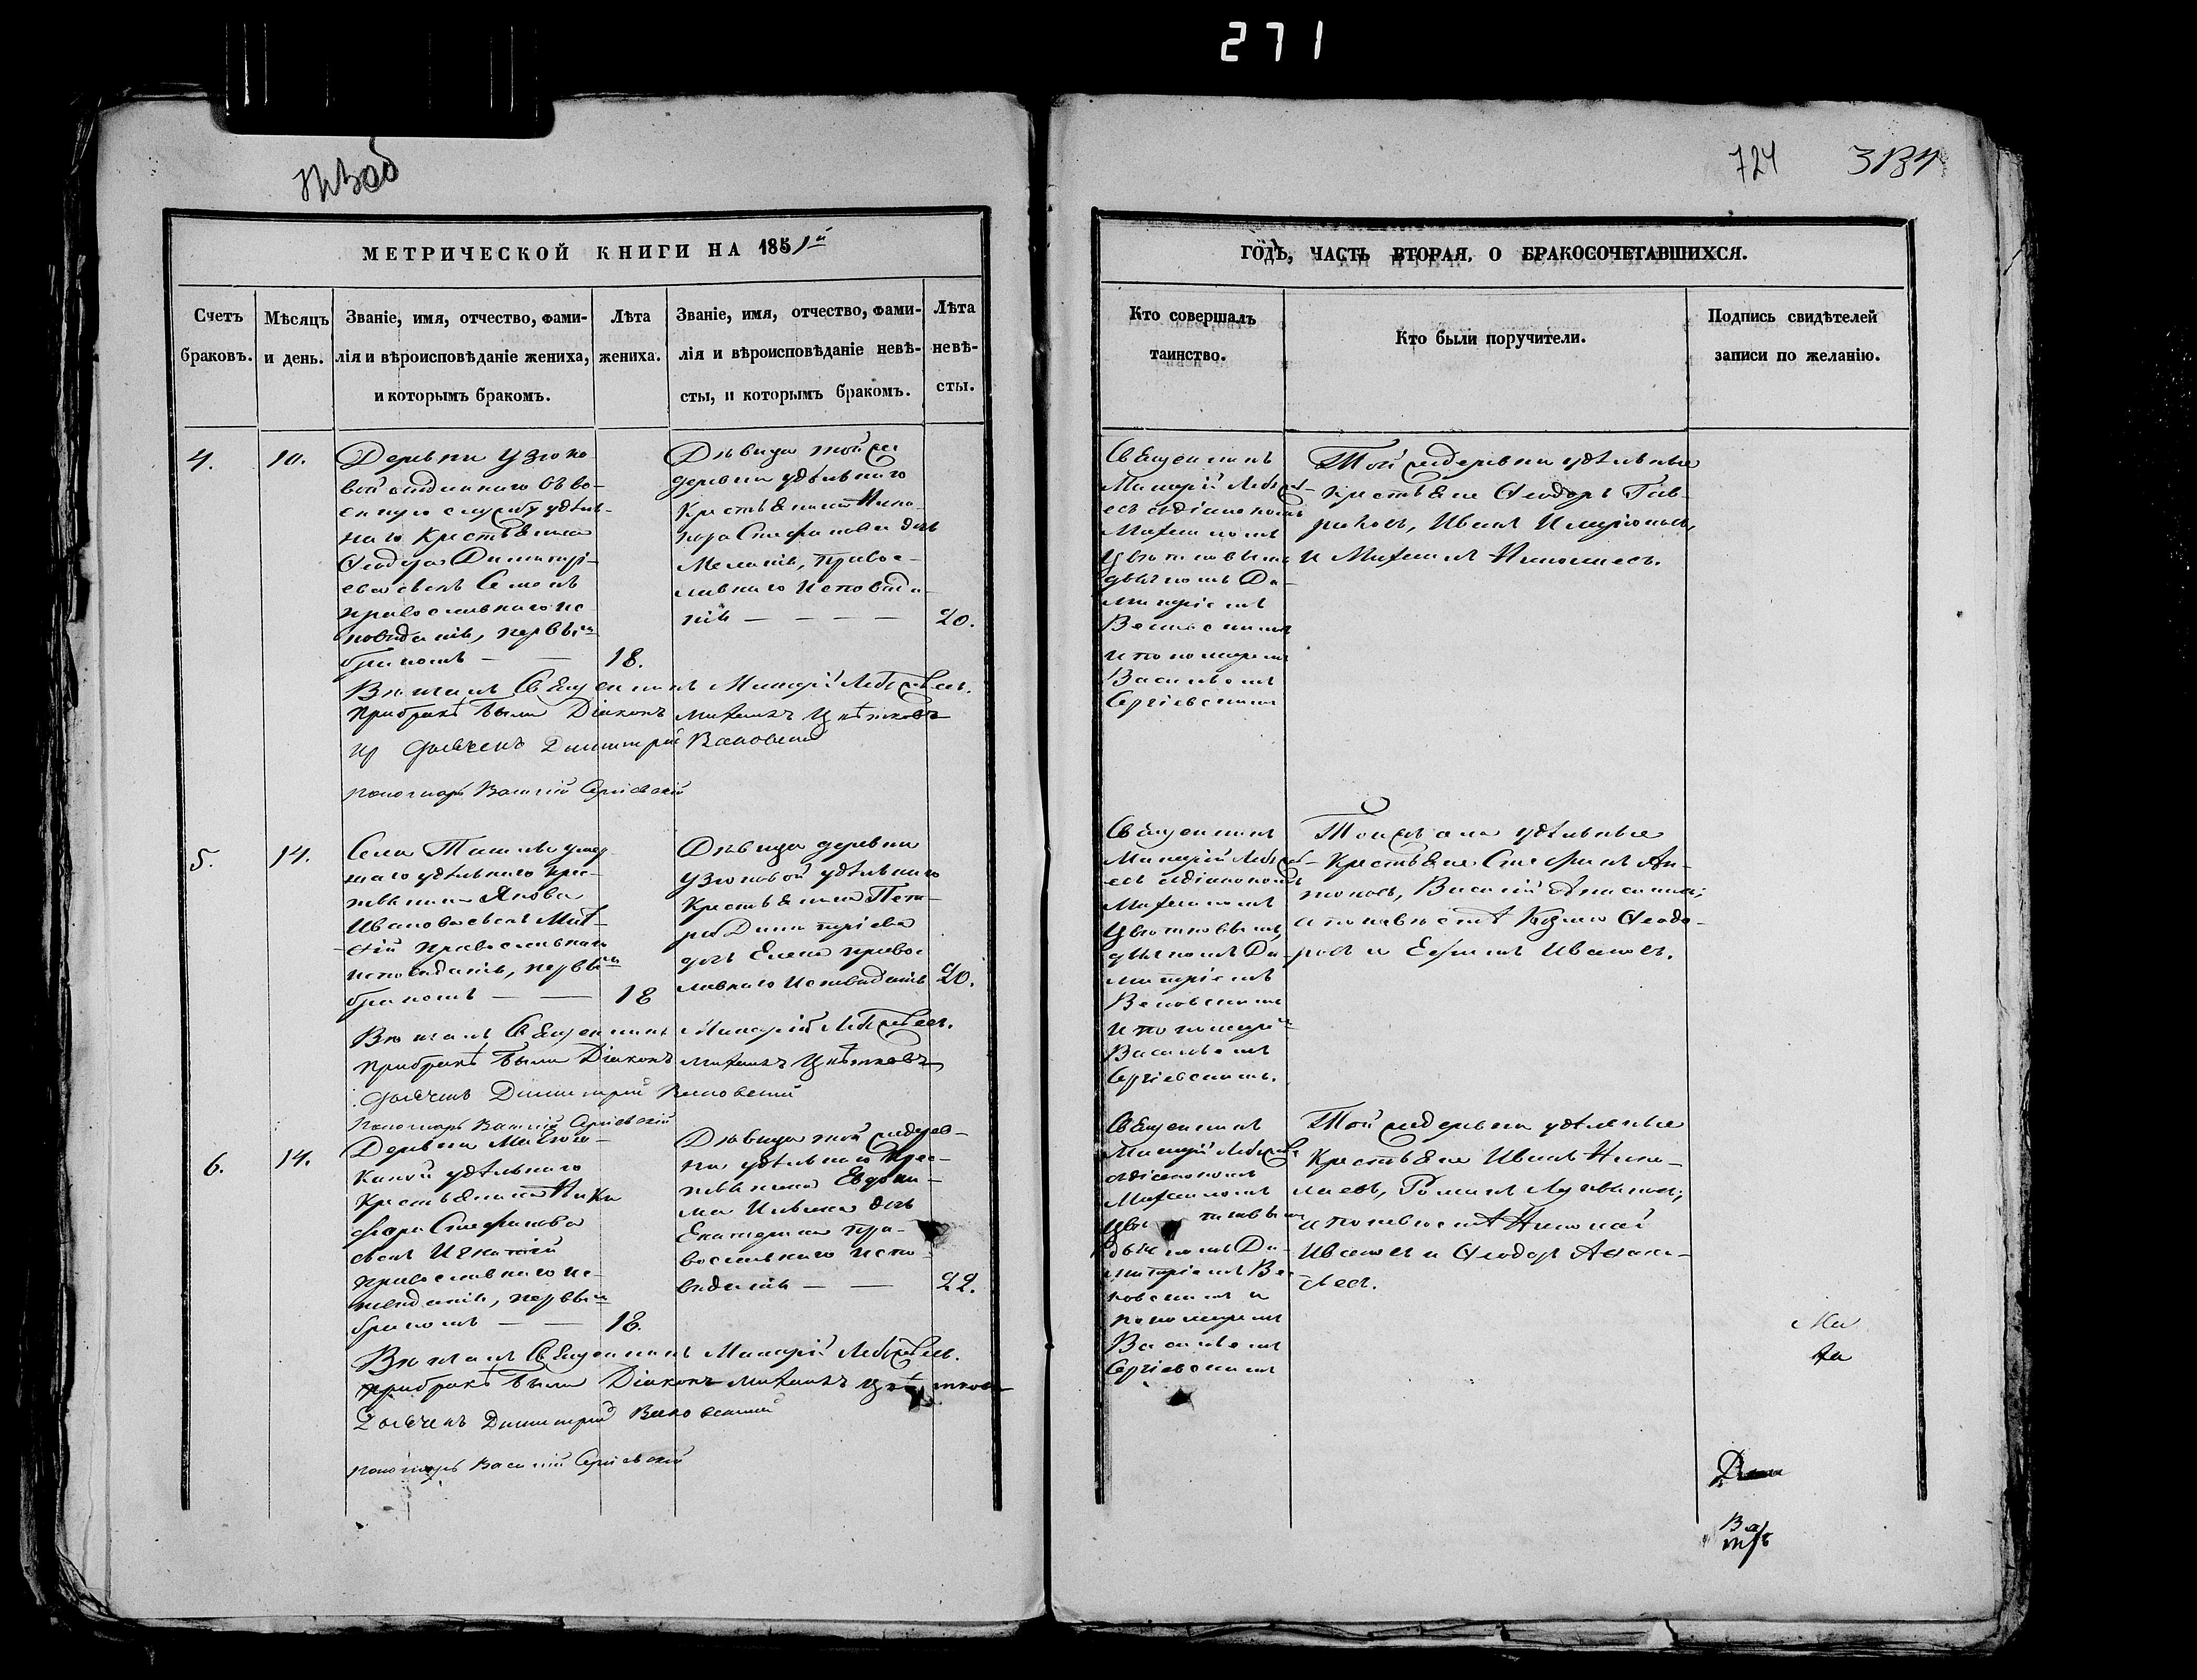 271
724
МЕТРИЧЕСКОЙ КНИГИ НА 1851й
Счетъ браковъ.
Мѣсяцъ и день.
Званіе, имя, отчество, фами-
лія и вѣроисповѣданіе жениха,
и которымъ бракомъ.
Лѣта
жениха.
Званіе, имя, отчество, фами-
лія и вѣроисповѣданіе невѣ-
сты, и которымъ бракомъ.
Лѣта
невѣ-
сты.
4.
10.
Деревни Узюко
вой отданнаго въ во-
енную службу удѣль-
наго крестьянина
Ѳеодора Димитрі-
ева сынъ Семенъ
православнаго ис
повѣданія, первымъ
бракомъ — —
18.
Дѣвица той же
деревни удѣльнаго
крестьянина Ники-
фора Стефанова дочь
православнаго исповѣда-
нія — — — —
20.
Вѣнчалъ Священникъ Макарій Лебедевъ.
при бракѣ были Діаконъ Михаилъ Цвѣтковъ
дьячекъ Димитрій
пономарь Василій Сергіевскій
5.
14.
Села Ташлы умер
шаго удѣльнаго крес-
тьянина Якова
Иванова сынъ Мат-
ѳій православнаго
исповѣданія, первымъ
бракомъ — —
18
Дѣвица деревни
Узюковой удѣльнаго
крестьянина Пет-
ра Димитріева
дочь Елена правос
лавнаго исповѣданія
20.
Вѣнчалъ Священникъ Макарій Лебедевъ.
при бракѣ были Діаконъ Михаилъ Цвѣтковъ
дьячекъ Димитрій
пономарь Василій Сергіевскій
6.
14.
Деревни
удѣльнаго
крестьянина Ники
фора Стефанова
сынъ Игнатій
православнаго ис-
повѣданія, первымъ
бракомъ — —
18.
Дѣвица той же дерев-
ни удѣльнаго крес-
тьянина Евдоки-
ма дочь
Екатерина пра-
вославнаго испо-
вѣданія — —
22.
Вѣнчалъ Священникъ Макарій Лебедевъ.
при бракѣ были Діаконъ Михаилъ Цвѣтковъ
Дьячекъ Димитрій
пономарь Василій Сергіевскій
ГОДЪ, ЧАСТЬ ВТОРАЯ, О БРАКОСОЧЕТАВШИХСЯ.
Кто совершалъ
таинство.
Кто были поручители.
Подпись свидѣтелей
записи по желанію.
Священникъ
Макарій Лебед-
евъ съ діакономъ
Михаиломъ
Цвѣтковымъ
дьячкомъ Ди-
митріемъ
и пономаремъ
Васильемъ
Сергіевскимъ
Той же деревни удѣльные
крестьяне Ѳеодоръ Гав-
риловъ, Иванъ
и Михаилъ
Священникъ
Макарій Лебед-
евъ съ діакономъ
Михаиломъ
Цвѣтковымъ,
дьячкомъ Ди-
митріемъ
и пономаремъ
Васильемъ
Сергіевскимъ.
Того же села удѣльные
крестьяне Стефанъ Ан-
тоновъ, Василій
а по невѣстѣ Козма Ѳеодо-
ровъ и Ефимъ Ивановъ.
Священникъ
Макарій Лебедевъ
съ діакономъ
Михаиломъ
Цвѣтковымъ
дьячкомъ Ди-
митріемъ
и
пономаремъ
Васильемъ
Сергіевскимъ
Той же деревни удѣльные
крестьяне Иванъ Нико-
лаевъ, Романъ
а по невѣстѣ Николай
Ивановъ и Ѳеодоръ